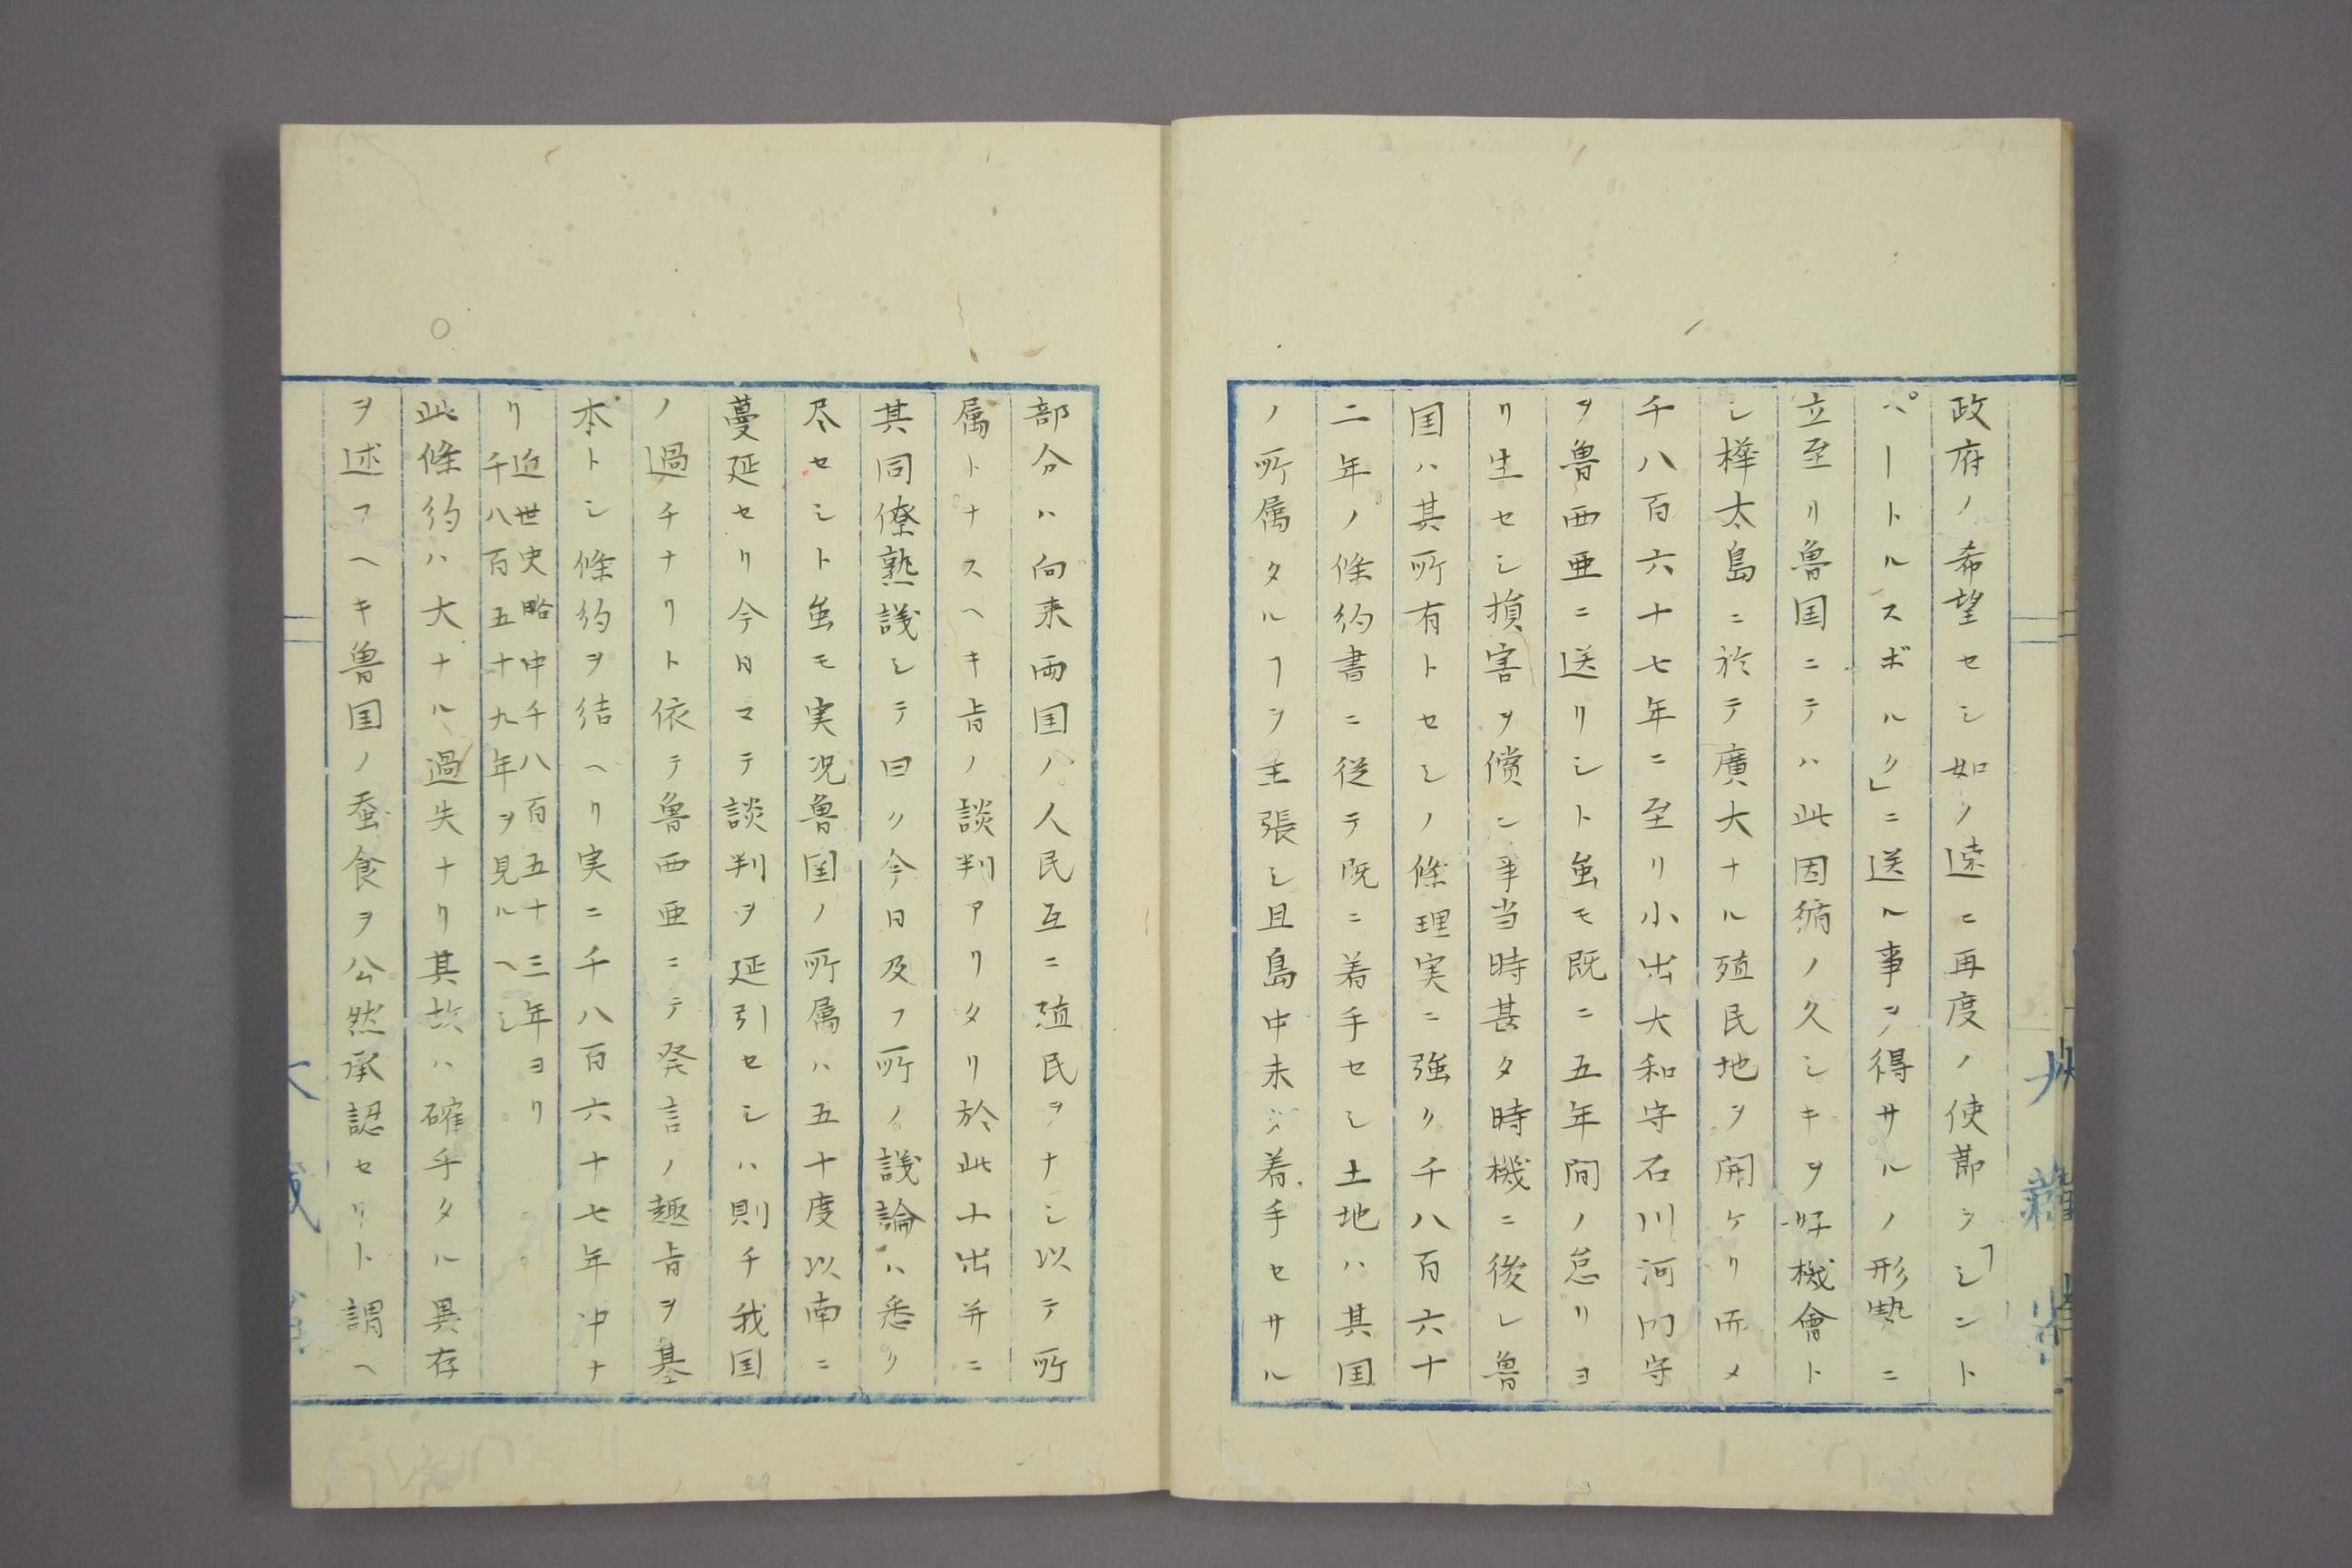 政府ノ希望セシ如ノ速ニ再度ノ使節ヲ「シント
ペートルスボルク」ニ送ル事ヲ得サルノ形勢ニ
立至リ魯国ニテハ此因循ノ久シキヲ好機會ト
シ樺太島ニ於テ廣大ナル殖民地ヲ開ケリ而メ
千八百六十七年ニ至リ小出大和守石川河内守
ヲ魯西亜ニ送リシト虽モ既ニ五年間ノ怠リヨ
リ生セシ損害ヲ償ン事当時甚タ時機ニ後レ魯
国ハ其所有トセシノ條理実ニ強ク千八百六十
二年ノ條約書ニ従テ既ニ着手セシ土地ハ其国
ノ所属タルヿヲ主張シ且島中未ジ着手セサル
部分ハ向来両国ノ人民互ニ殖民ヲナシ以テ所
属トナスヘキ旨ノ談判アリタリ於此小出并ニ
其同僚熟議シテ曰ク今日及フ所ノ議論ハ悉ク
尽セシト虽モ実况魯国ノ所属ハ五十度以南ニ
蔓延セリ今日マテ談判ヲ延引セシハ則チ我国
ノ過チナリト依テ魯西亜ニテ発言ノ趣旨ヲ基
本トシ條約ヲ結ヘリ実ニ千八百六十七年中ナ
リ近世史略中千八百五十三年ヨリ
千八百五十九年ヲ見ルヘシ
此條約ハ大ナル過失ナリ其故ハ確乎タル異存
ヲ述フヘキ魯国ノ蚕食ヲ公然承認セリト謂ヘ